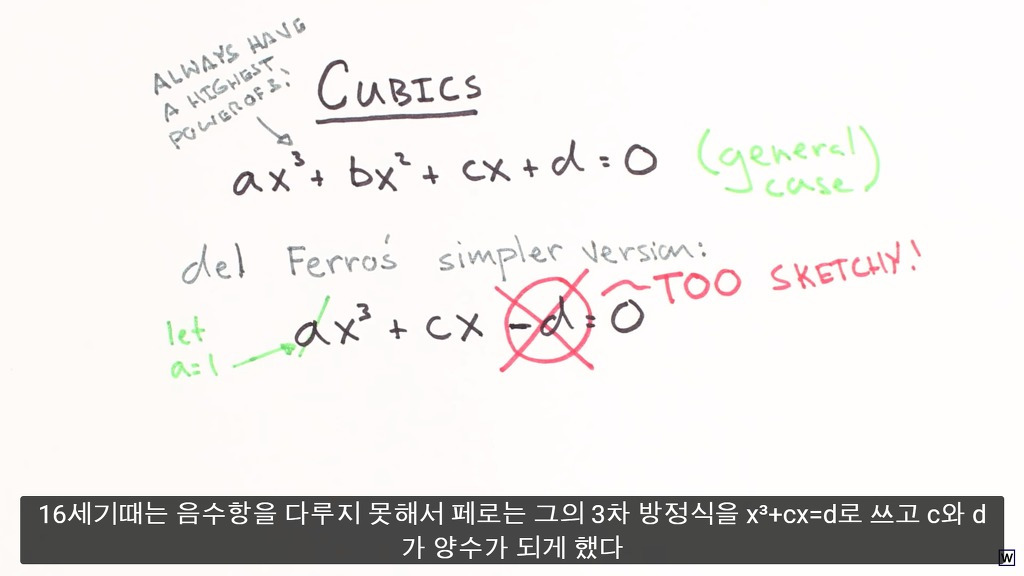 ALWAYS HAVE
A HIGHEST
POWER OF 3!
CUBICS
ax³ + bx² + cx + d = 0
(general
case)
del Ferro's simpler version:
TOO SKETCHY!
let
a=1
ax³ + cx - d = 0
16세기때는 음수항을 다루지 못해서 페로는 그의 3차 방정식을 x³+cx=d로 쓰고 c와 d
가 양수가 되게 했다
W